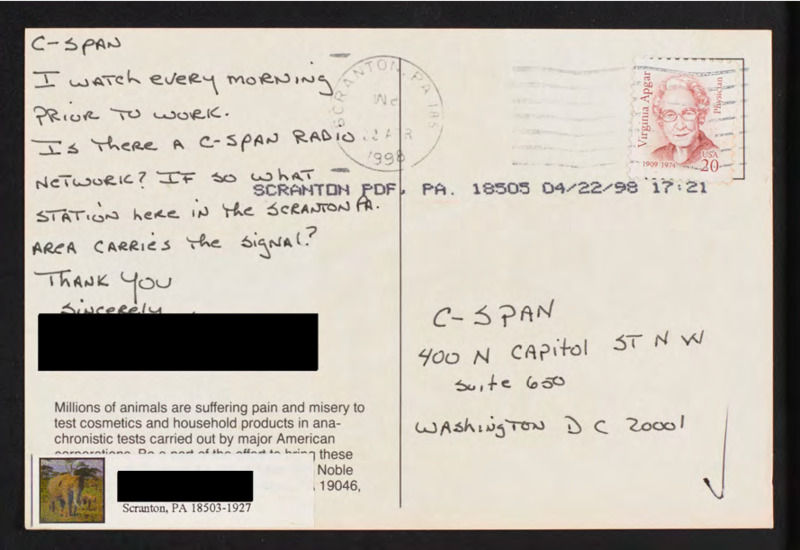 C-SPAN
I WATCH EVERY MORNING
PRIOR TO WORK.
IS THERE A C-SPAN RADIO
NETWORK? IF SO WHAT
STATION HERE IN THE SCRANTON PA.
AREA CARRIES THE SIGNAL?
THANK YOU
SINCERELY,
Millions of animals are suffering pain and misery to
test cosmetics and household products in ana-
chronistic tests carried out by major American
corporations. Be a part of the effort to bring these
Noble
19046,
Scranton, PA 18503-1927
SCRANTON, PA 185
22 APR
1998
SCRANTON PDF, PA. 18505 04/22/98 17:21
Virginia Apgar
Physician
1909-1974
USA
20
C-SPAN
400 N CAPITOL ST N W
SUITE 650
WASHINGTON D C 20001